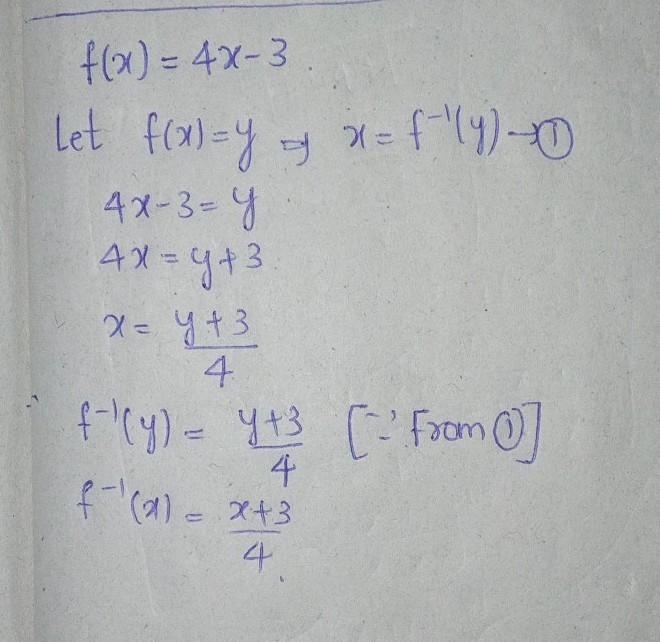 f(x) = 4x-3.
Let f(x)=y ⇒ x = f⁻¹(y) →①
4x-3 = y
4x = y+3
x = y+3/4
∴ f⁻¹(y) = y+3/4 [∵ From ①]
f⁻¹(x) = x+3/4.